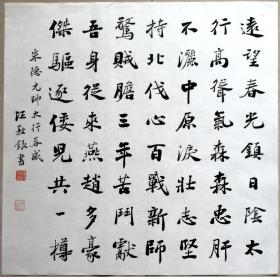 遠望春光鎮日陰太
行高聳氣森森忠肝
不灑中原淚壯志堅
持北伐心百戰新師
驚賊膽三年苦鬥獻
吾身從來燕趙多豪
傑驅逐倭兒共一樽
朱德元帥太行春感
汪 書